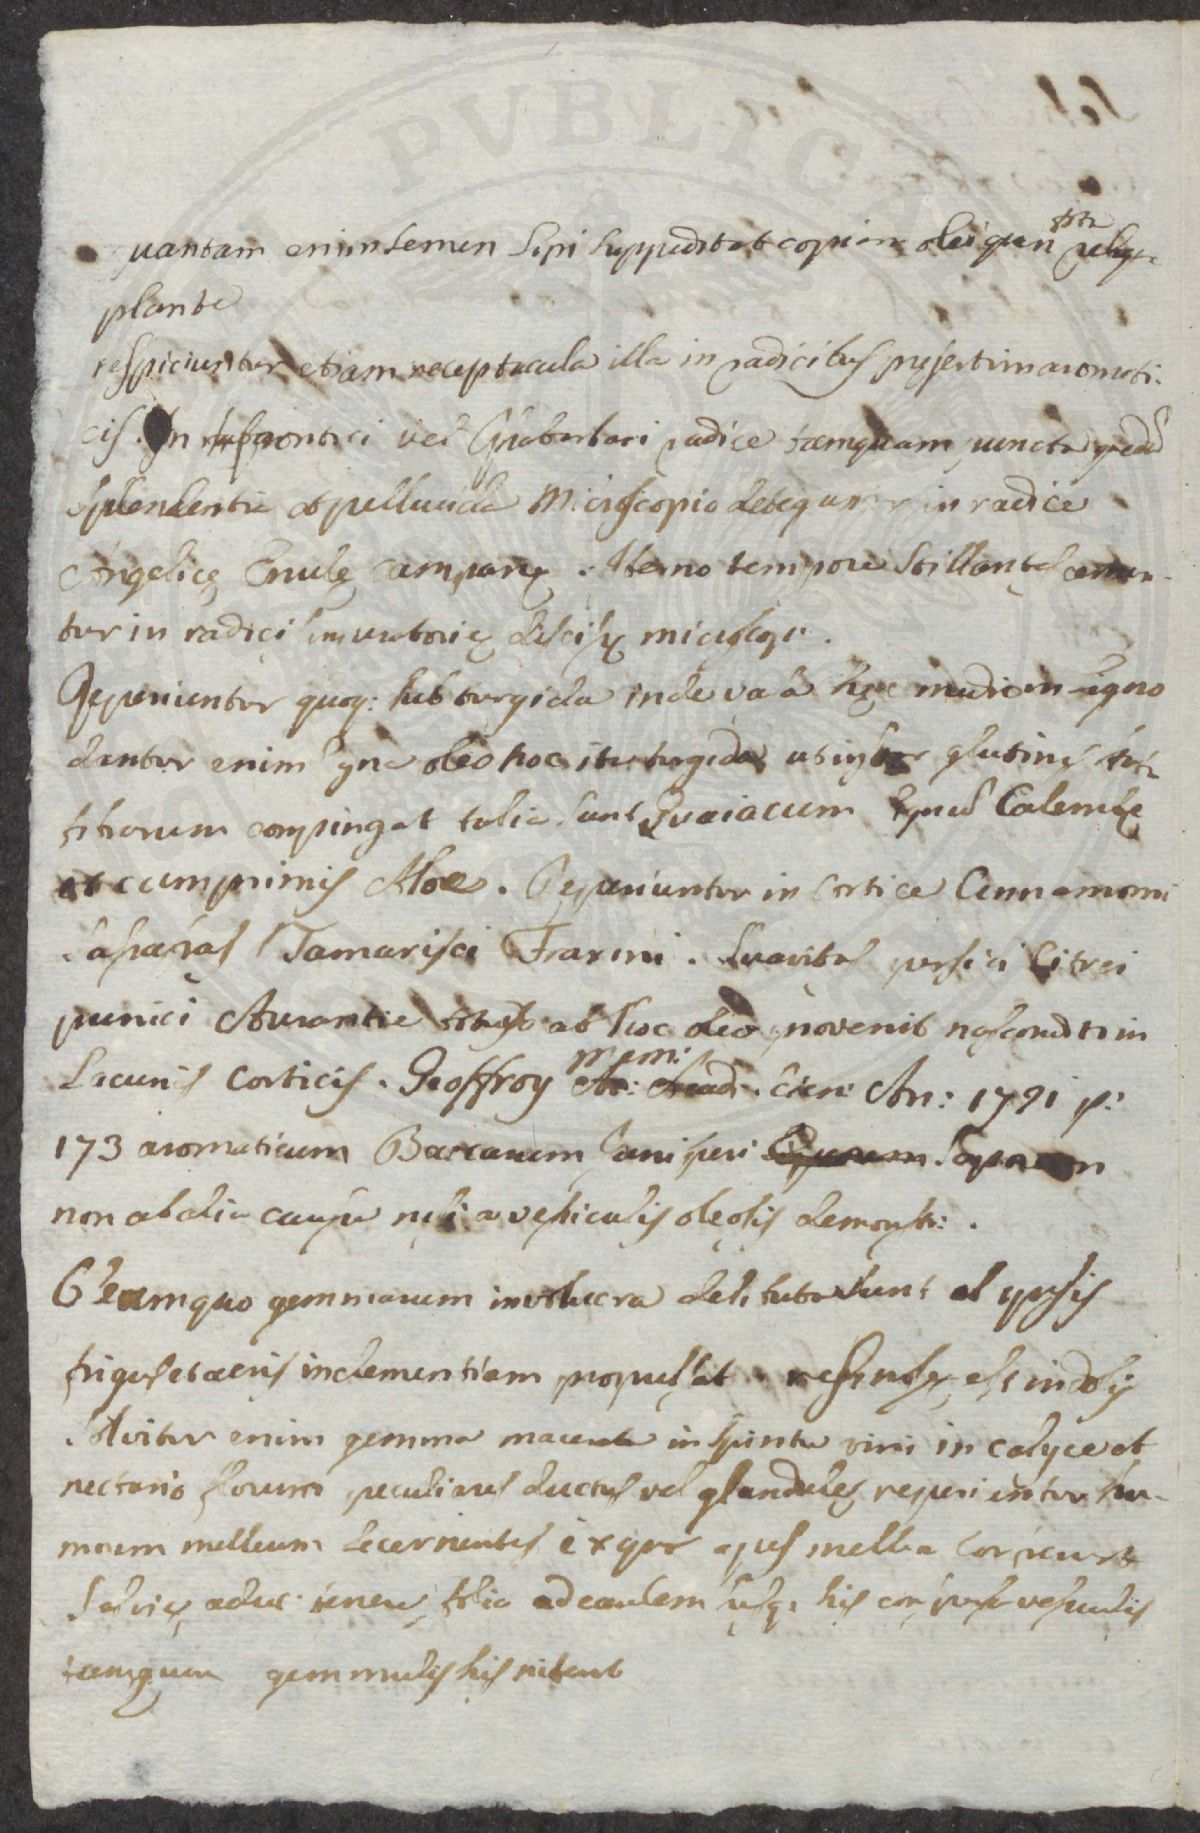 PVBLIC
uantam enim semen Sipi suppeditat copiam olei quam tota reliqua
plante
respiciuntur etiam receptacula illa in radicibus presertim aromati-
cis. In rhapontici vel Rhabarbari radice tamquam puncta quedam
splendentia et pellucida Microscopio deteguntur in radice
Angelicę Enulę campanę. Verno tempore stillantes cernun-
tur in radicis imperatorię discisę microscop.
Reperiuntur quoq: sub turgida inde vasa hęc medio in ligno
dantur enim ligna oleo hoc ita turgida ut instar glutinis
fibrarum compingat talia sunt Guaiacum lignum Calembę
et cumprimis Aloe. Reperiuntur in Cortice Cinnamomi
Sasafras Tamarisci Fraxini. Suavitas persici Citrei
punici Aurantie ab hoc oleo provenit nascondito in
Lacunis Corticis. Geoffroy mem: Acad. Scien: An: 1721 p:
173 aromaticum Baccarum Juniperi Saporem
non ab alia causa nisi a vesiculis oleosis demonstr:.
Gleamquo gemmarum involucra delibuta sunt et ipsis
frigus et aeris inclementiam propulsat resinosę est indolis
Solvitur enim gemma macerata in spiritu vini in calyce et
nectario florum peculiares ductus vel glandulę reperiuntur hu-
morem melleum secernentes ex quo apes mella conficiunt
Salvię aduc tenera folia ad caulem usq: his conspersa vesiculis
tamquam gemmulis his nitent